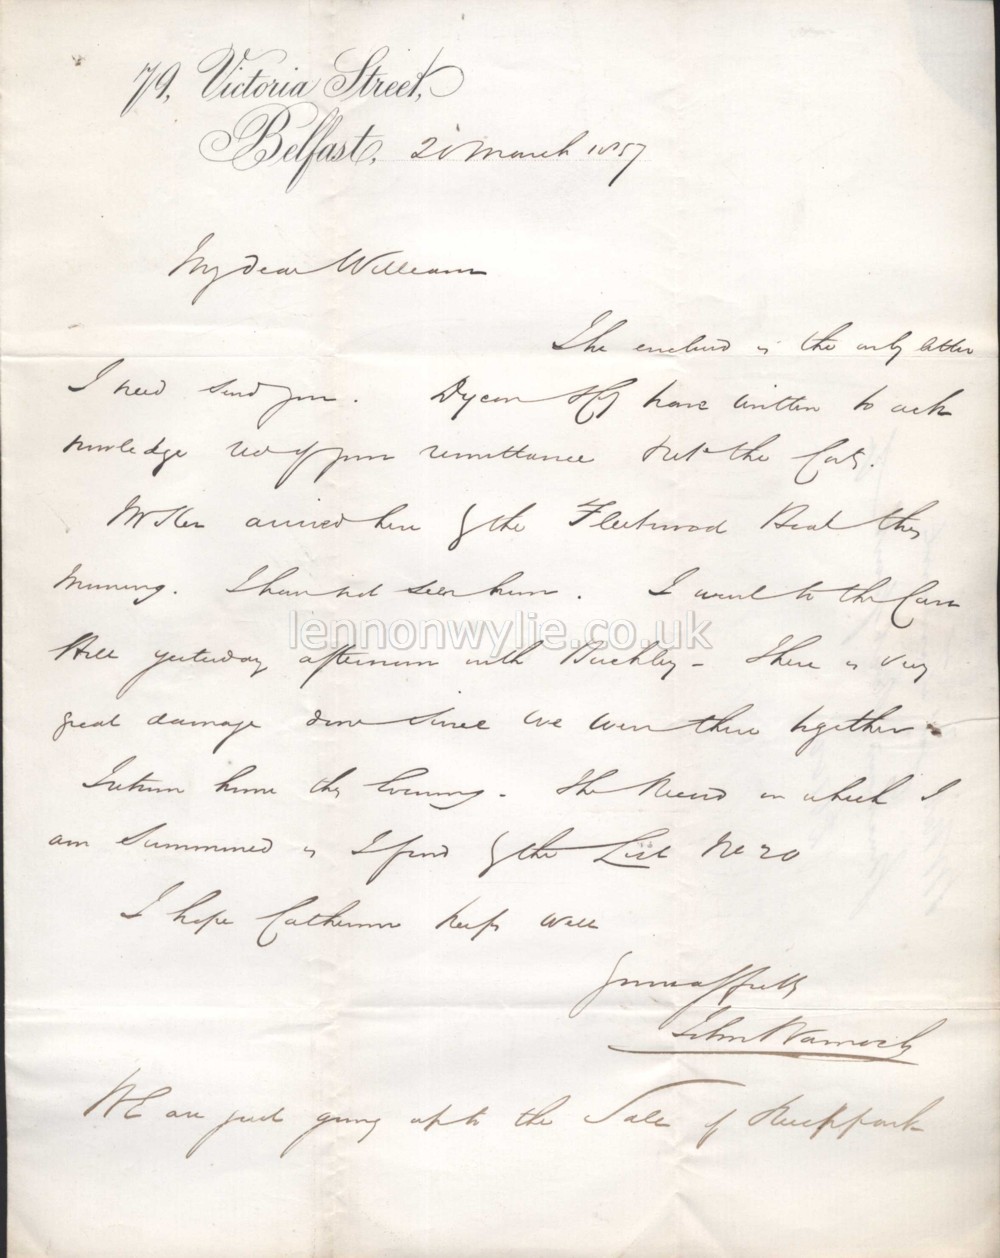 79, Victoria Street,
Belfast, 20 March 1857
My dear William
The enclosed is the only letter
I need send you. Dycon have written to ack
nowledge of your remittance the
Mr Ker arrived here by the Fleetwood Boat this
Morning. I have not seen him. I went to the Cave
Hill yesterday afternoon with Buckley - There is very
great damage done since we were there together
I return home this Evening. The Record in which I
am Summoned is I find by the List No 20
I hope Catherine keeps well
Your affectly
John Warnock
We are just going up to the Sale of
lennonwylie.co.uk